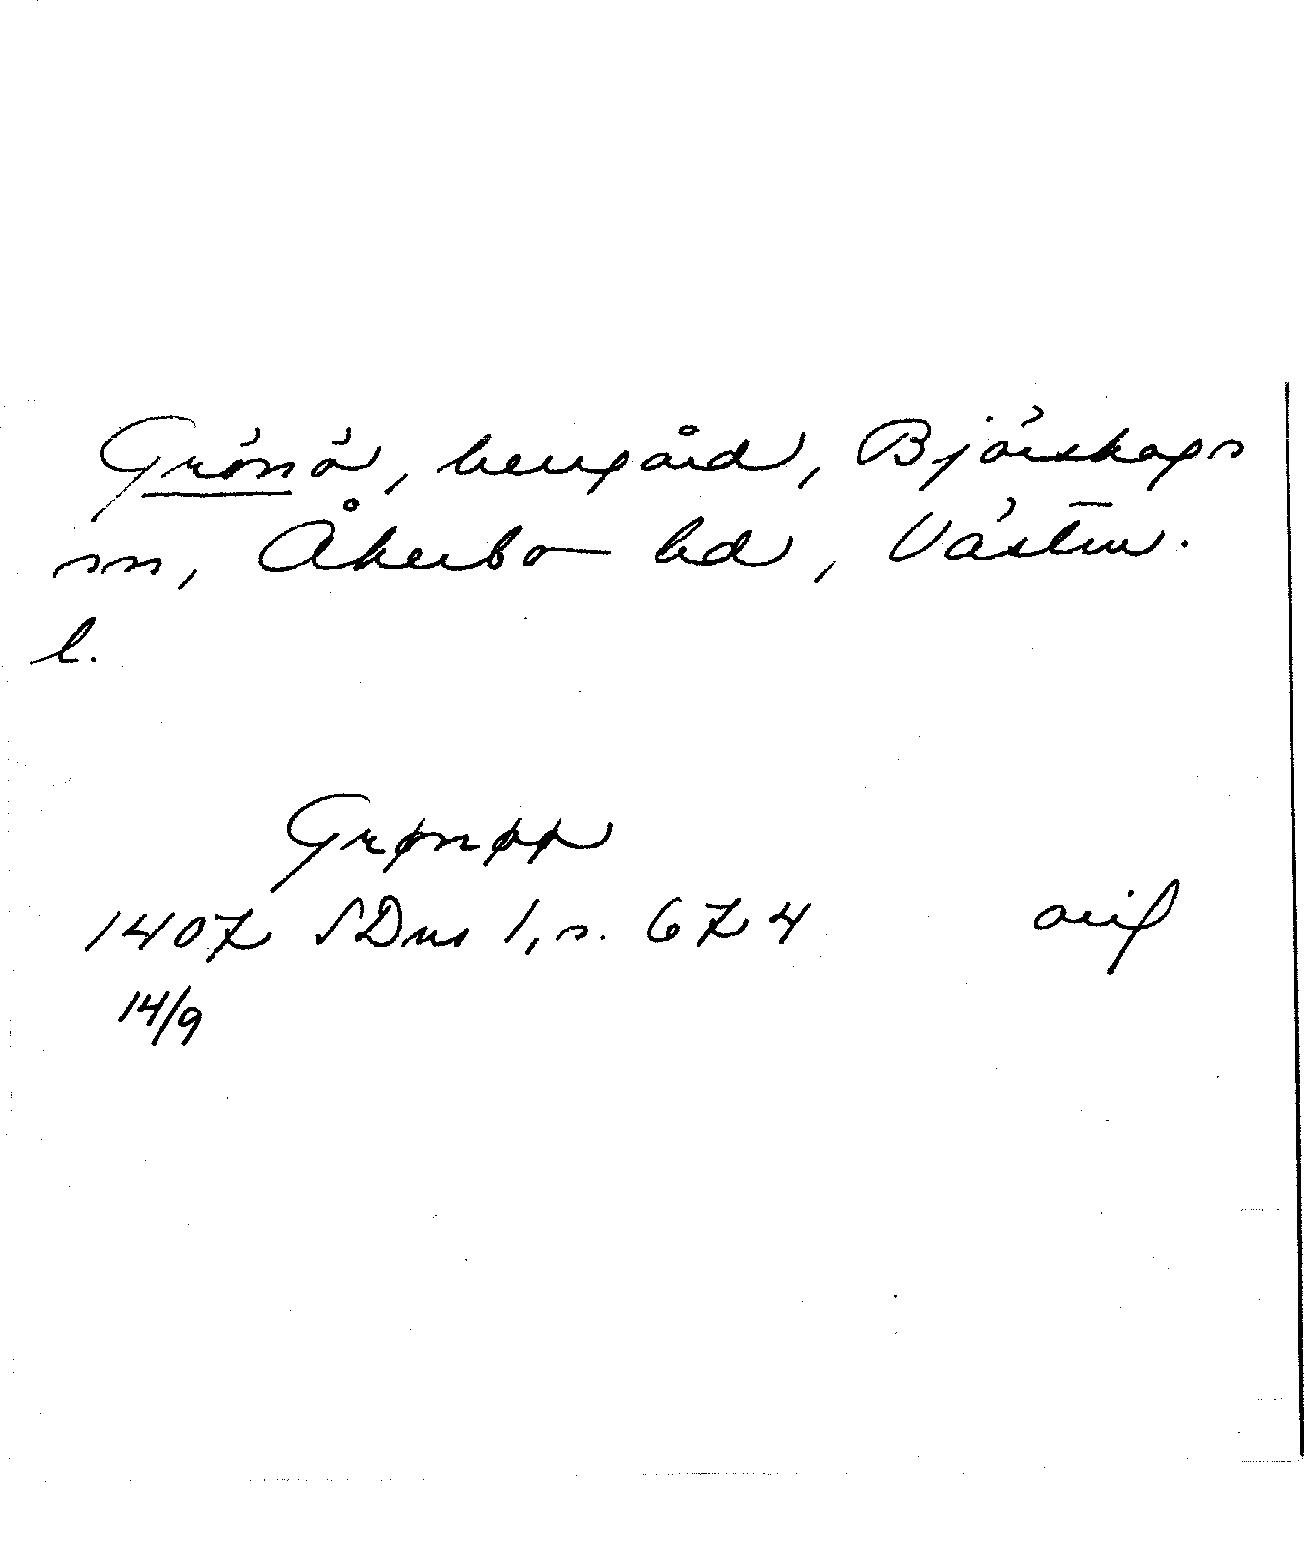 Grönö, herrgård, Björskogs
sn, Åkerbo hd, Västm.
l.
Grønøø
1407 SDns 1, s. 674 orig
14/9